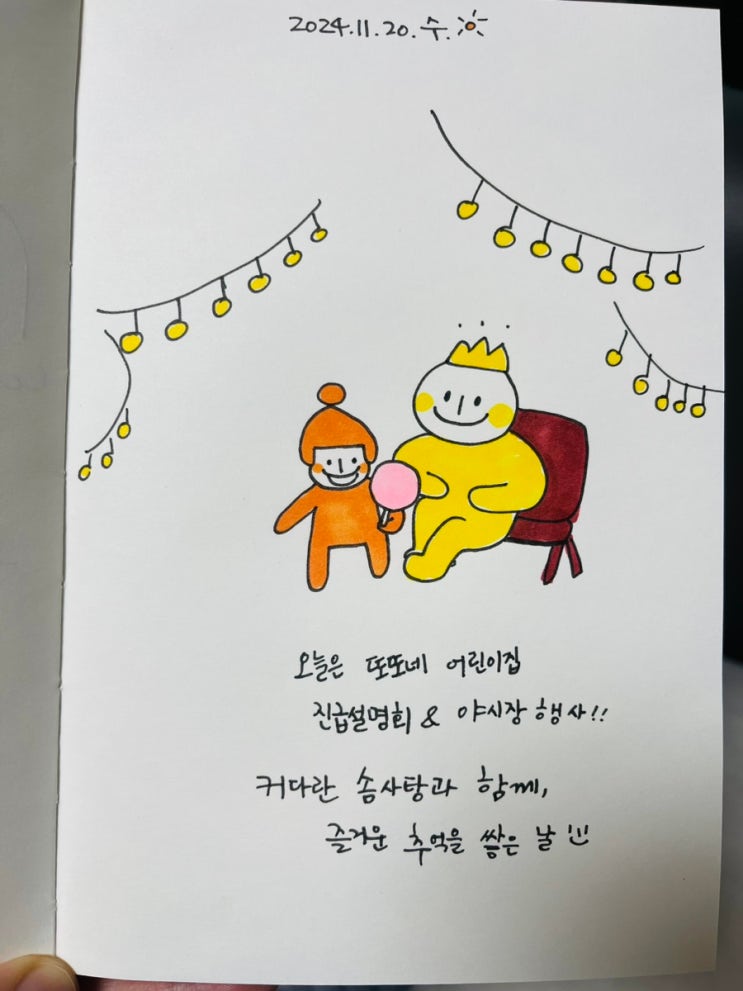 2024.11.20.수.
오늘은 또또네 어린이집
진급설명회 & 야시장 행사!!
커다란 솜사탕과 함께,
즐거운 추억을 쌓은 날